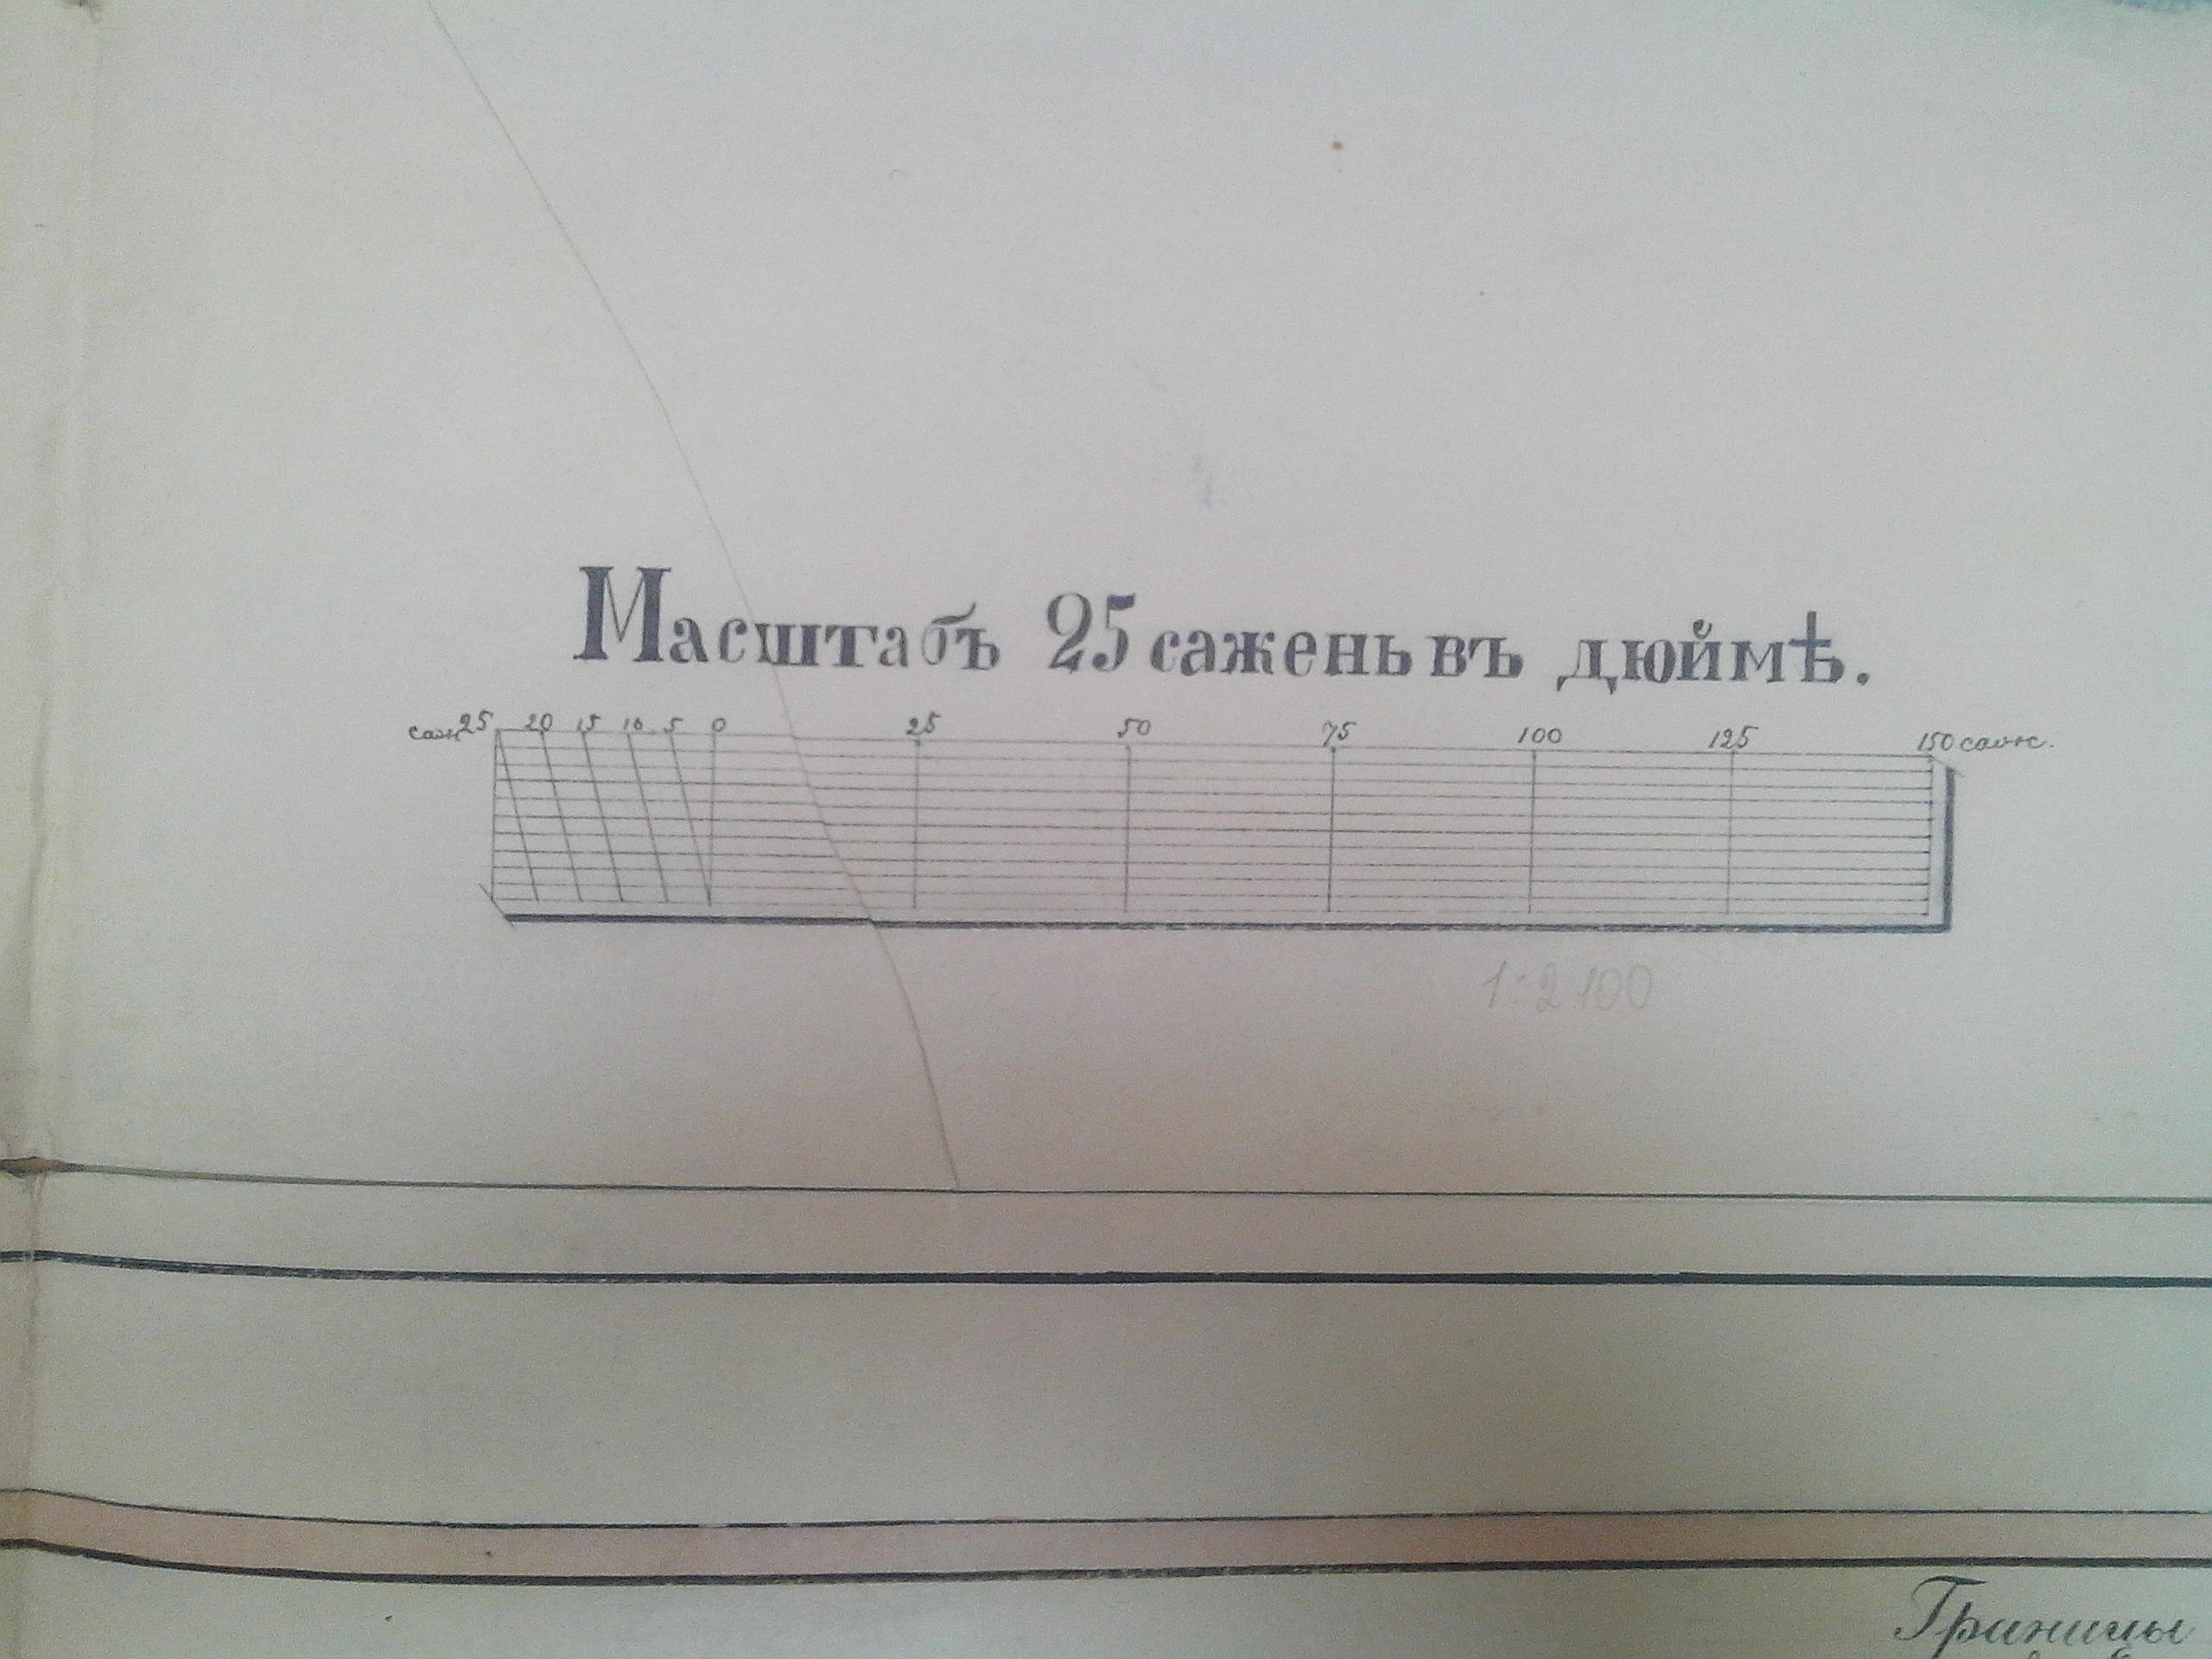 Масштабъ 25 сажень въ дюймѣ.
саж. 25 20 15 10 5 0 25 50 75 100 125 150 саж.
1:2100
Границы